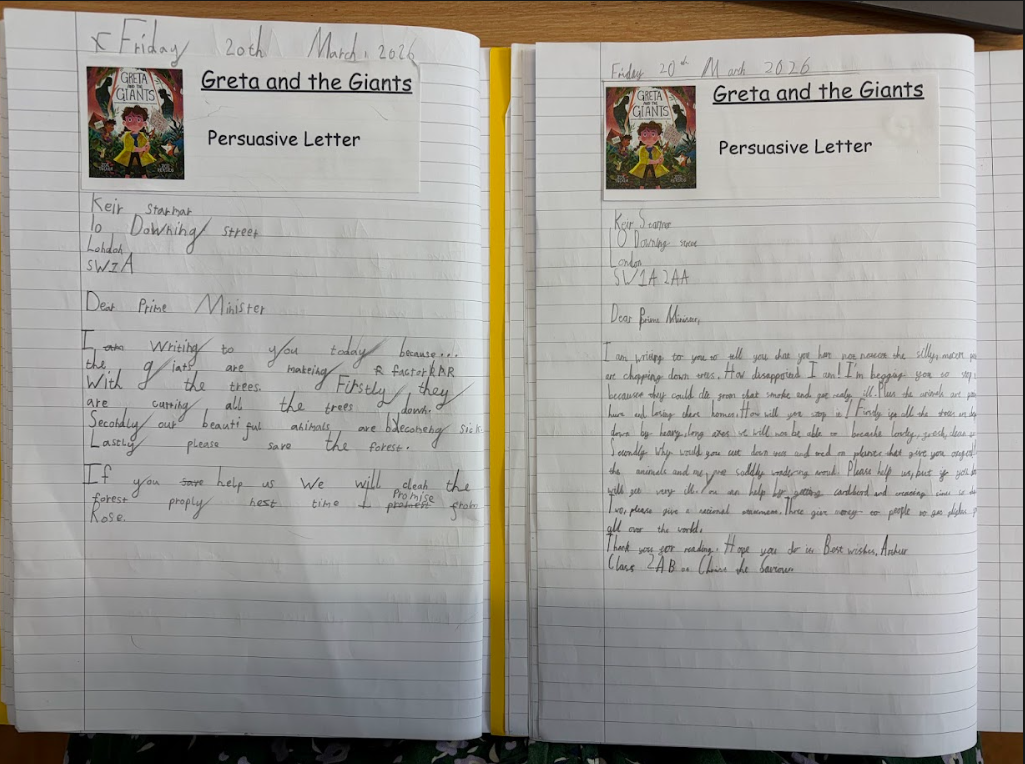 Friday 20th March. 2026
GRETA
AND THE
GIANTS
Greta and the Giants
Persuasive Letter
Keir starmar
10 Downing street
London
SW1A
Dear Prime Minister
I are Writing to you today because...
the giats are making a factorkAR
With the trees. Firstly they
are cutting all the trees down.
Secondly our beautiful animals are bdecoming sick
Lastly please save the forest.
If you save help us We will clean the
forest proply next time I promise from
Rose.
Friday 20th March 2026
GRETA
AND THE
GIANTS
Greta and the Giants
Persuasive Letter
Keir
10 Downing
London
SW1A 2AA
Dear Prime Minister,
I am writing to you to tell you that you have not the silly,
are chopping down trees. How disappointed I am! I'm begging you to stop
because they could die from that smoke and get realy ill. Plus the animals are
hurt and losing there homes. How will you if all the trees are
down by heavy, long we will not be able to breathe lovely, fresh, clean
Secondly why would you cut down trees and on planets that give you
the animals and me, are saddly work. Please help us, but if you
will get very ill. You can help by getting cardbord and
Two, please give a national Those give money to people to
all over the world.
Thank you for reading. Hope you do it. Best wishes,
Class 2AB the